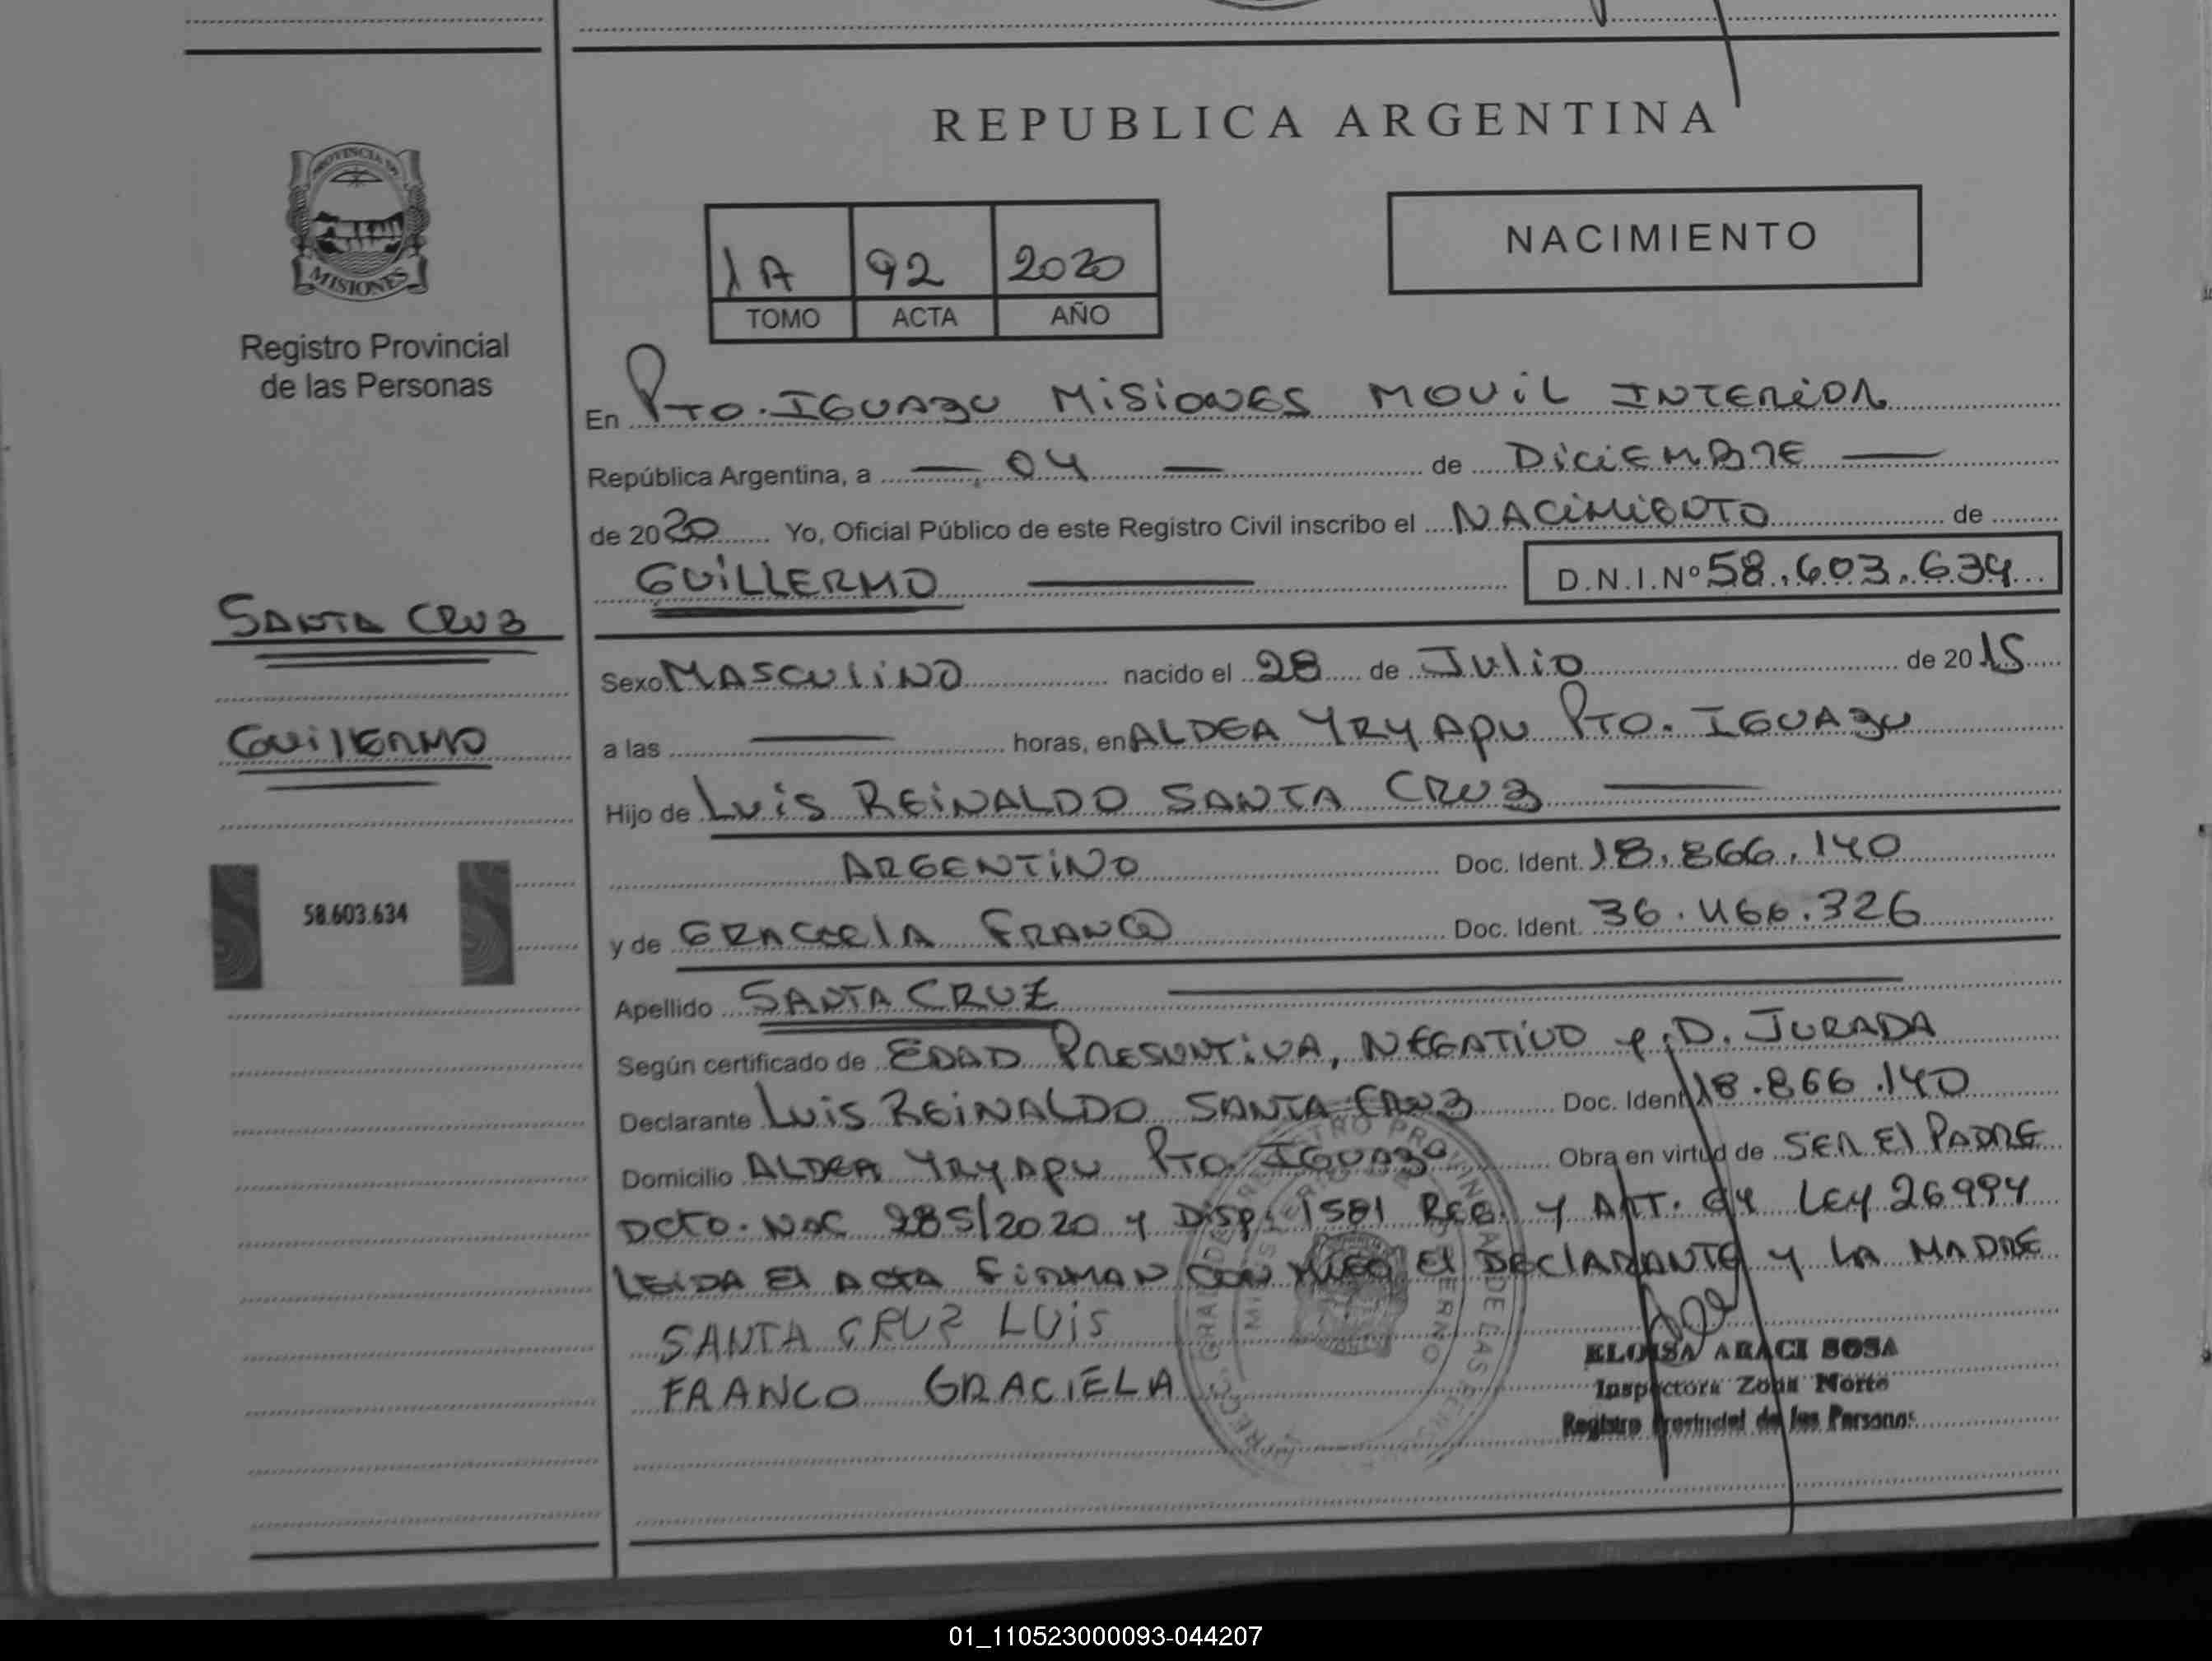 REPUBLICA ARGENTINA
PROVINCIA DE
MISIONES
Registro Provincial
de las Personas
NACIMIENTO
1A 92 2020
TOMO ACTA AÑO
En Pto. IGUAZU MISIONES MOVIL INTERIOR
República Argentina, a — 04 — de DICIEMBRE —
de 2020 Yo, Oficial Público de este Registro Civil inscribo el NACIMIENTO de
GUILLERMO — D.N.I.Nº 58.603.634
SANTA CRUZ
GUILLERMO
58.603.634
Sexo MASCULINO nacido el 28 de Julio de 2015
a las — horas, en ALDEA YRY APU PTO. IGUAZU
Hijo de LUIS REINALDO SANTA CRUZ —
ARGENTINO Doc. Ident. 18.866.140
y de GRACIELA FRANCO Doc. Ident. 36.466.326
Apellido SANTA CRUZ —
Según certificado de EDAD PRESUNTIVA, NEGATIVO y D. JURADA
Declarante LUIS REINALDO SANTA CRUZ Doc. Ident. 18.866.140
Domicilio ALDEA YRY APU PTO. IGUAZU Obra en virtud de SER El PADRE
DCTO. NAC 285/2020 y DISP. 1581 REG. Y ART. 64 LEY 26994
LEIDA El ACTA FIRMAN CON MIGO El DEClARANTE y LA MADRE
SANTA CRUZ LUIS
FRANCO GRACIELA
ELOISA ARACI SOSA
Inspectora Zona Norte
Registro Provincial de las Personas
01_110523000093-044207